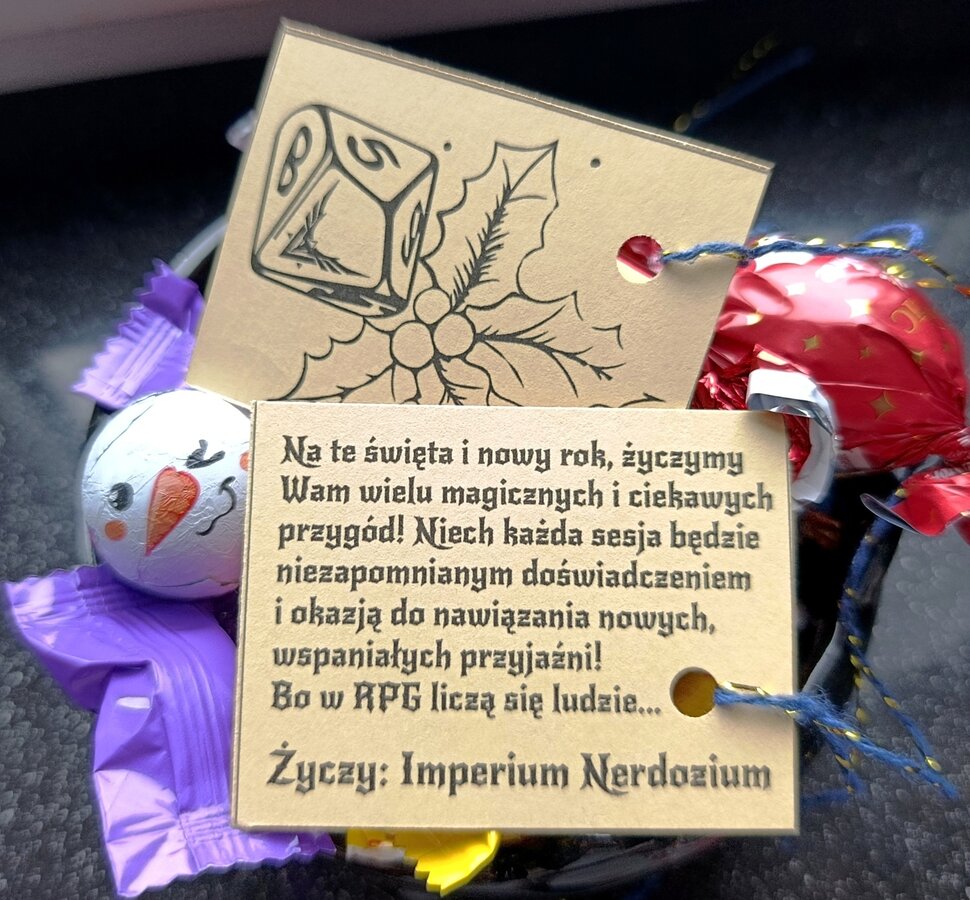 B
S
S
Na te święta i nowy rok, życzymy
Wam wielu magicznych i ciekawych
przygód! Niech każda sesja będzie
niezapomnianym doświadczeniem
i okazją do nawiązania nowych,
wspaniałych przyjaźni!
Bo w RPG liczą się ludzie...
Życzy: Imperium Nerdozium